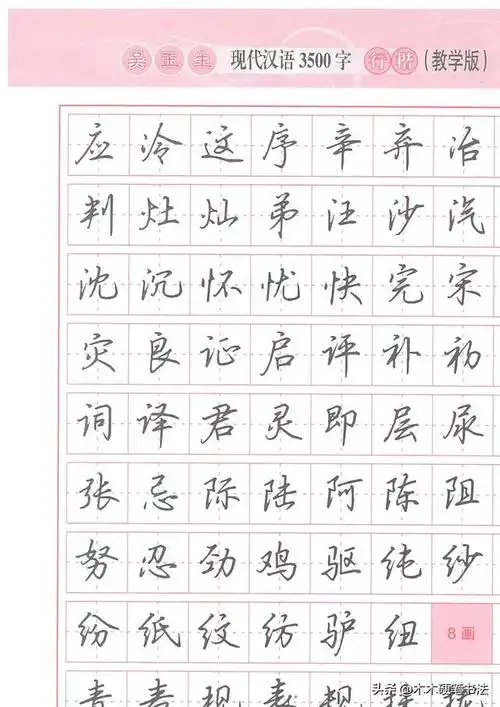 吴玉生 现代汉语3500字 行楷 (教学版)
应冷这序辛弃冶
判灶灿弟汪沙汽
沈沉怀忧快完宋
灾良证启评补初
词译君灵即层尿
张忌际陆阿陈阻
努忍劲鸡驱纯纱
纷纸纹纺驴纽8画
头条@木木硬笔书法